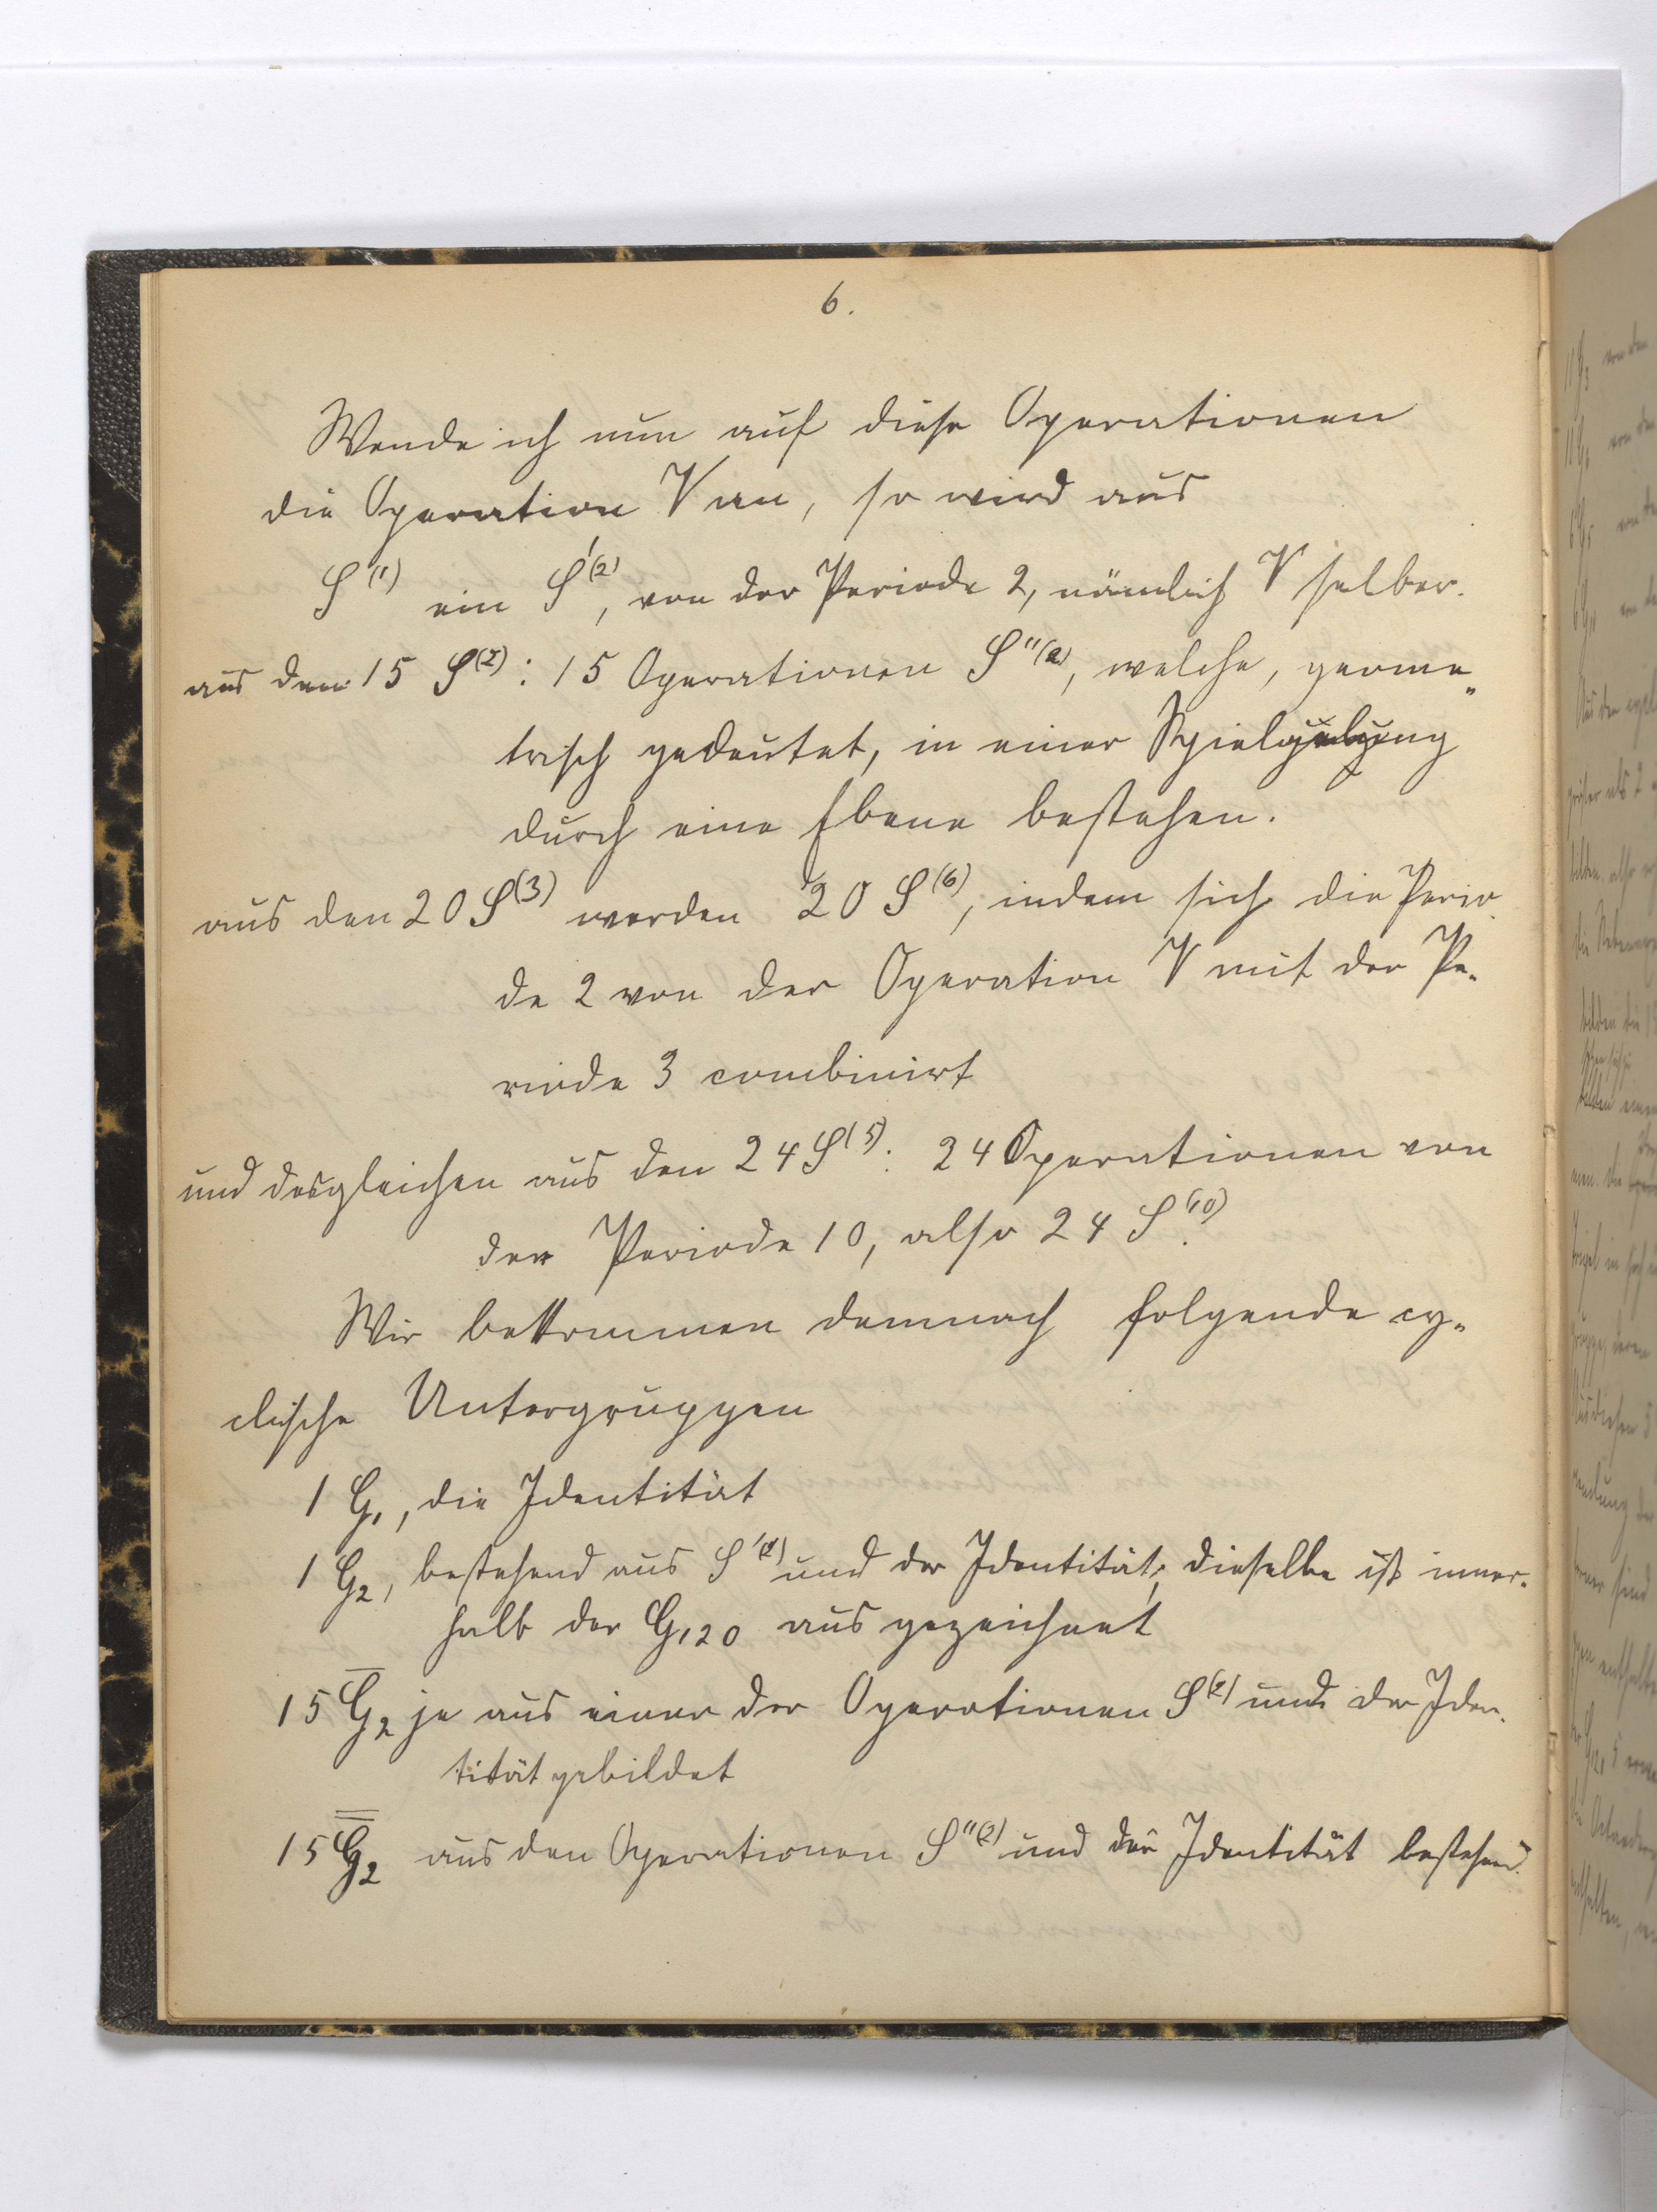 6.
Wende ich nun auf diese Operationen
die Operation V an, so wird aus
S⁽¹⁾ ein S'⁽²⁾, von der Periode 2, nämlich V selber.
aus den 15 S⁽²⁾: 15 Operationen S''⁽²⁾, welche, geome„
trisch gedeutet, in einer
durch eine Ebene bestehen.
aus den 20 S⁽³⁾ werden 20 S⁽⁶⁾, indem sich die Perio
de 2 von der Operation V mit der Pe-
riode 3 combinirt
und desgleichen aus den 24 S⁽⁵⁾: 24 Operationen von
der Periode 10, also 24 S⁽¹⁰⁾.
Wir bekommen demnach folgende cy-
clische Untergruppen
1 G₁, die Identität
1 G₂, bestehend aus S'⁽²⁾ und der Identität; dieselbe ist inner-
halb der G₁₂₀ ausgezeichnet
15 G̅₂ je aus einer der Operationen S⁽²⁾ und der Iden-
tität gebildet
15 G̿₂ aus den Operationen S''⁽²⁾ und der Identität bestehend.